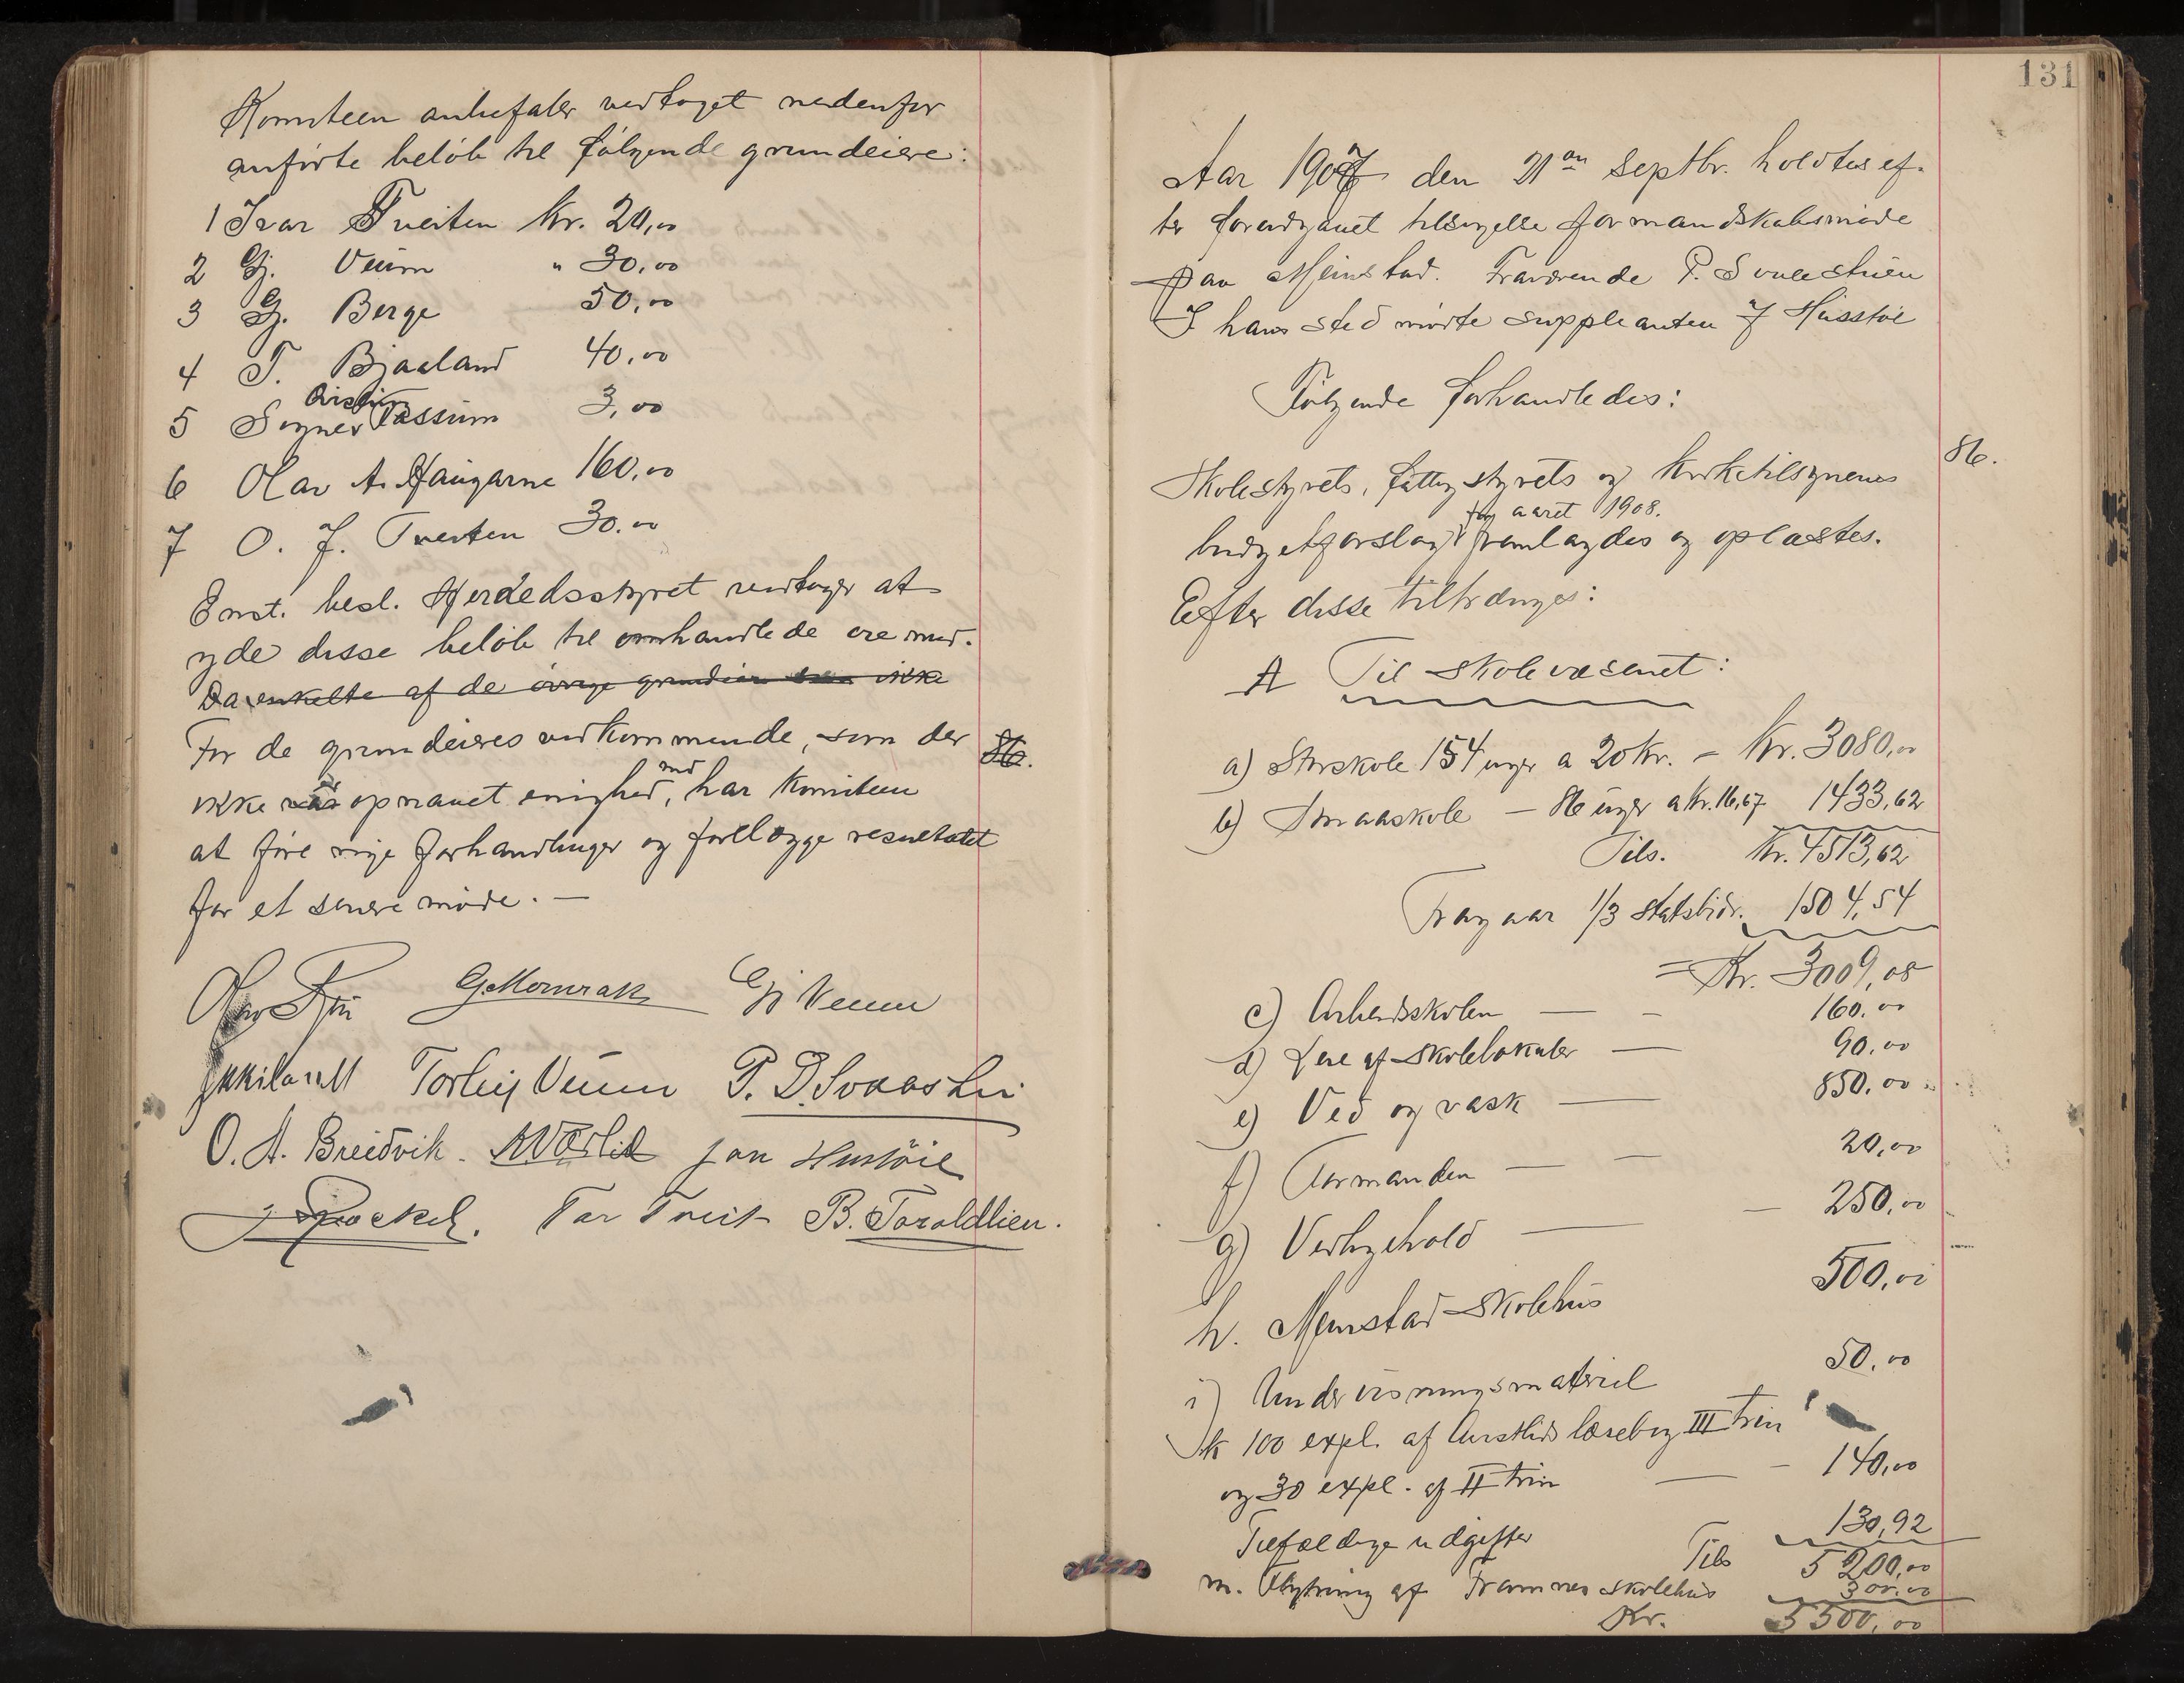 Komiteen anbefaler vedtaget nedenfor
anførte beløb til følgende grundeiere:
1 Ivar Tveiten Kr. 20,00
2 Gj. Veum " 30,00
3 Gj. Berge 50,00
4 T. Bjaaland 40,00
5 Sogner Qvistin Tassum 3,00
6 Olav A. Haugarne 160,00
7 O. J. Tveiten 30.00
Enst. besl. Herredsstyret vedtager at
yde disse beløb til omhandlede øiemed.
Da enkelte af de øvrige grundeiere ikke
For de grundeieres vedkommende, som der
86.
ikke er opnaaet enighed med, har komiteen
at føre nye forhandlinger og forelægge resultatet
for et senere møde. —
G. Momrak Gj Veum
Torleif Veum P. D. Svaaslii
O. A. Breidvik. Jon Husstöil
Tar Tveit B. Taraldlien.
131
Aar 1907 den 21an Septbr. holdtes ef-
ter foreudgaaet tilsigelse formandskabsmøde
paa Meinstad. Fraværende P.
I hans sted mødte suppleanten J Husstöil
Følgende forhandledes:
86.
Skolestyrets, fattigstyrets og kirketilsynenes
for aaret 1908.
budgetforslag fremlagdes og oplæstes.
Efter disse tiltrænges:
A Til skolevæsenet:
a) Storskole 154 uger a 20 Kr. = Kr. 3080,00
b) Smaaskole — 86 uger a Kr. 16,67 1433,62
Tils. Kr. 4513,62
Fragaar 1/3 statsbidr. 1504,54
= Kr. 3009,08
c) Arbeidsskolen — – 160.00
d) Leie af skolelokaler — 90.00
e) Ved og vask — 850.00
f) Formanden — — 20,00
g) Vedligehold — — 250,00
h. Meinstad skolehus 500,00
i) Undervisningsmateriel 50,00
k 100 expl. af Austlids læsebog III trin
og 30 expl. af II trin — – 140,00
Tilfældige udgifter 130,92
Tils 5200,00
m. Flytning af Framnes skolehus 300.00
Kr. 5500,00